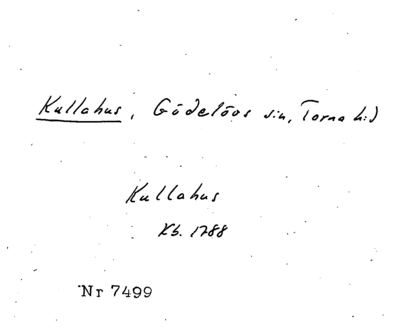 Kullahus, Gödelövs sn, Torna hd
Kullahus
Kb. 1788
Nr 7499